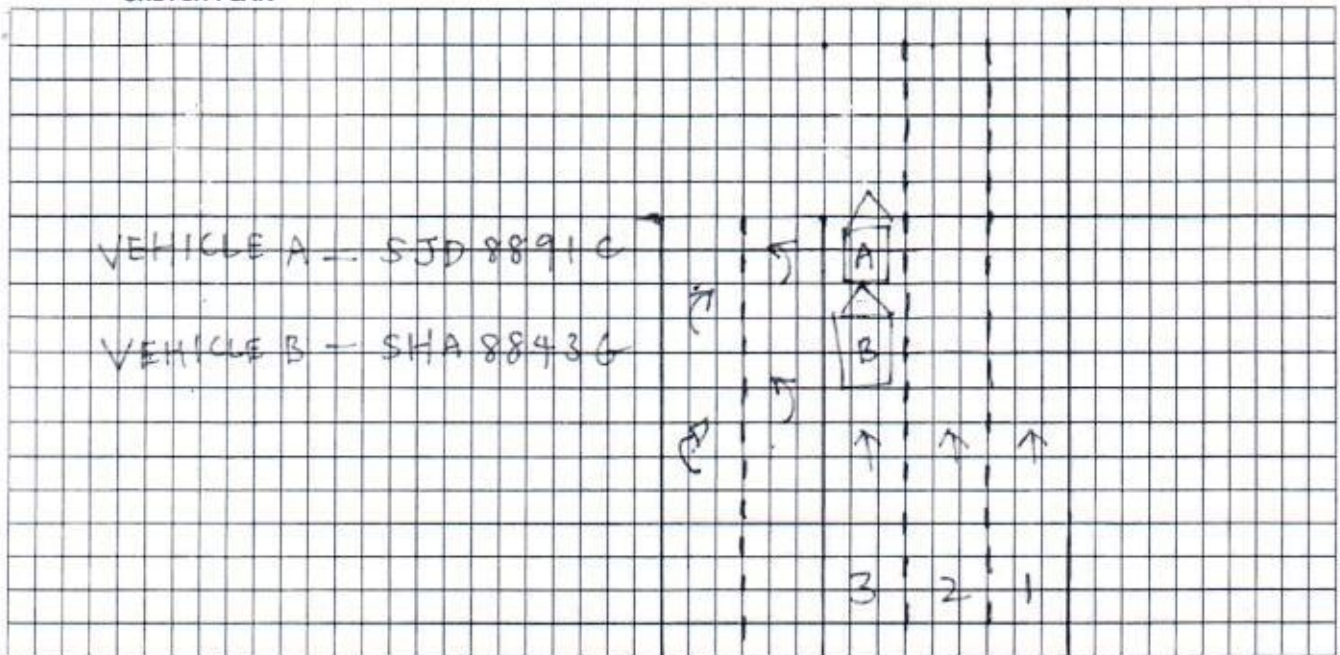 VEHICLE A - SJD 8891 C
A
VEHICLE B - SHA 8843 G
B
3 2 1